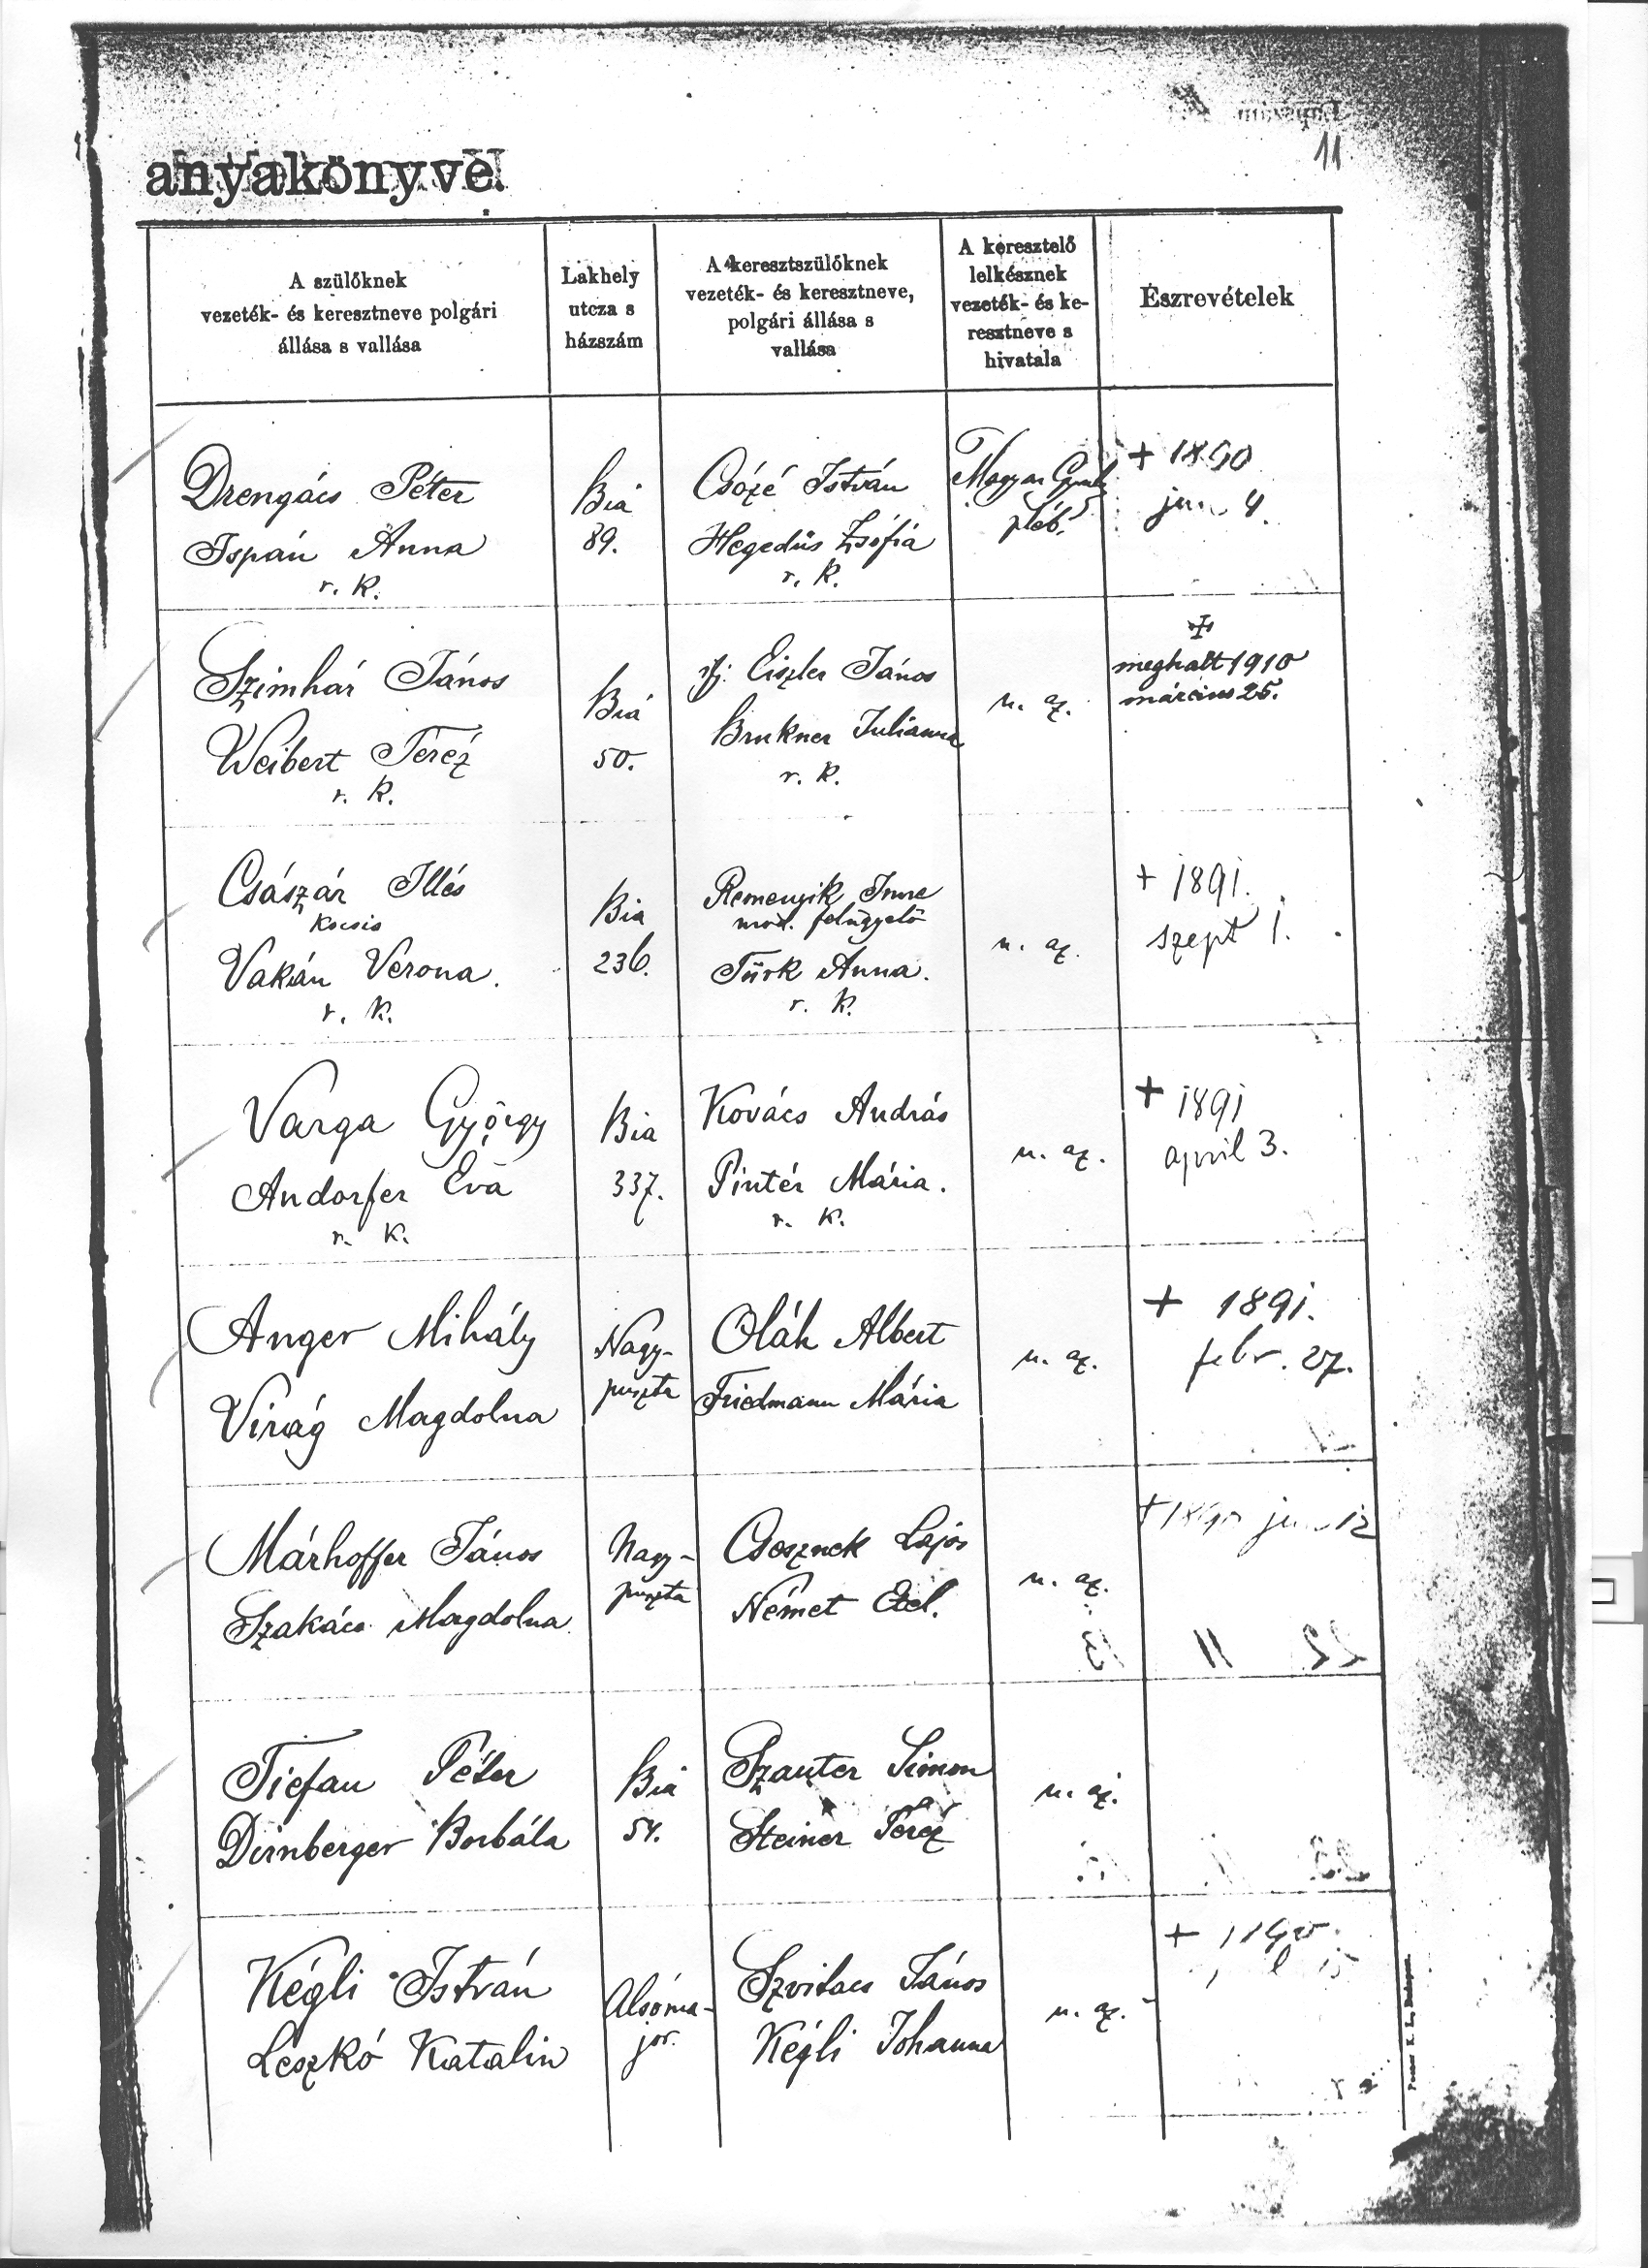 11
anyakönyve.
A szülőknek
vezeték- és keresztneve polgári
állása s vallása
Lakhely
utcza s
házszám
A keresztszülőknek
vezeték- és keresztneve,
polgári állása s
vallása
A keresztelő
lelkésznek
vezeték- és ke-
resztneve s
hivatala
Észrevételek
Drengács Péter
Ispán Anna
r. k.
Bia
89.
Csózé István
Hegedűs Zsófia
r. k.
Magyar
pléb.
+ 1890
jun. 4.
Szimhár János
Weibert Teréz
r. k.
Bia
50.
ifj. Eiszler János
Brukner Julianna
r. k.
u. az.
meghalt 1910
március 25.
Császár Illés
kocsis
Vakán Verona.
r. k.
Bia
236.
Remenyik Imre
felügyelő
Türk Anna.
r. k.
u. az.
+ 1891.
szept 1.
Varga György
Andorfer Éva
r. k.
Bia
337.
Kovács András
Pintér Mária.
r. k.
u. az.
+ 1891
april 3.
Anger Mihály
Virág Magdolna
Nagy-
puszta
Oláh Albert
Friedmann Mária
u. az.
+ 1891.
febr. 27.
Márhoffer János
Szakács Magdolna
Nagy-
puszta
Csesznek Lajos
Német Etel.
u. az.
12
Tiefau Péter
Dirnberger Borbála
Bia
54.
Szauter Simon
Steiner Teréz
u. az.
Kégli István
Leszkó Katalin
Alsóma-
jor.
Szvitacs János
Kégli Johanna
u. az.
+